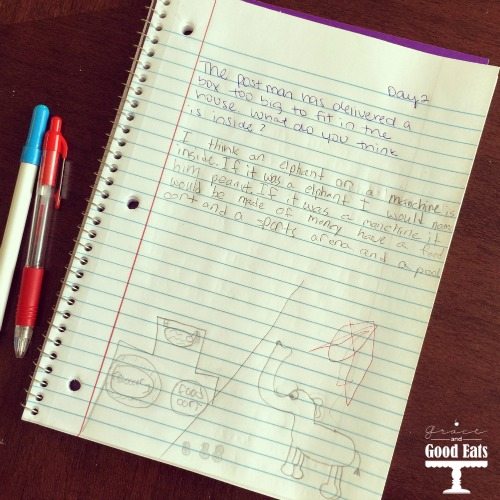 Day 2
The postman has delivered a
box too big to fit in the
house what do you think
is inside?
I think an elphant or a manchine is
inside. If it was a elphant I would name
him peanit. If it was a manchine it
would be made of meney have a food
cort and a sports arena and a pool
soccer
food
cort
grace
and
Good Eats